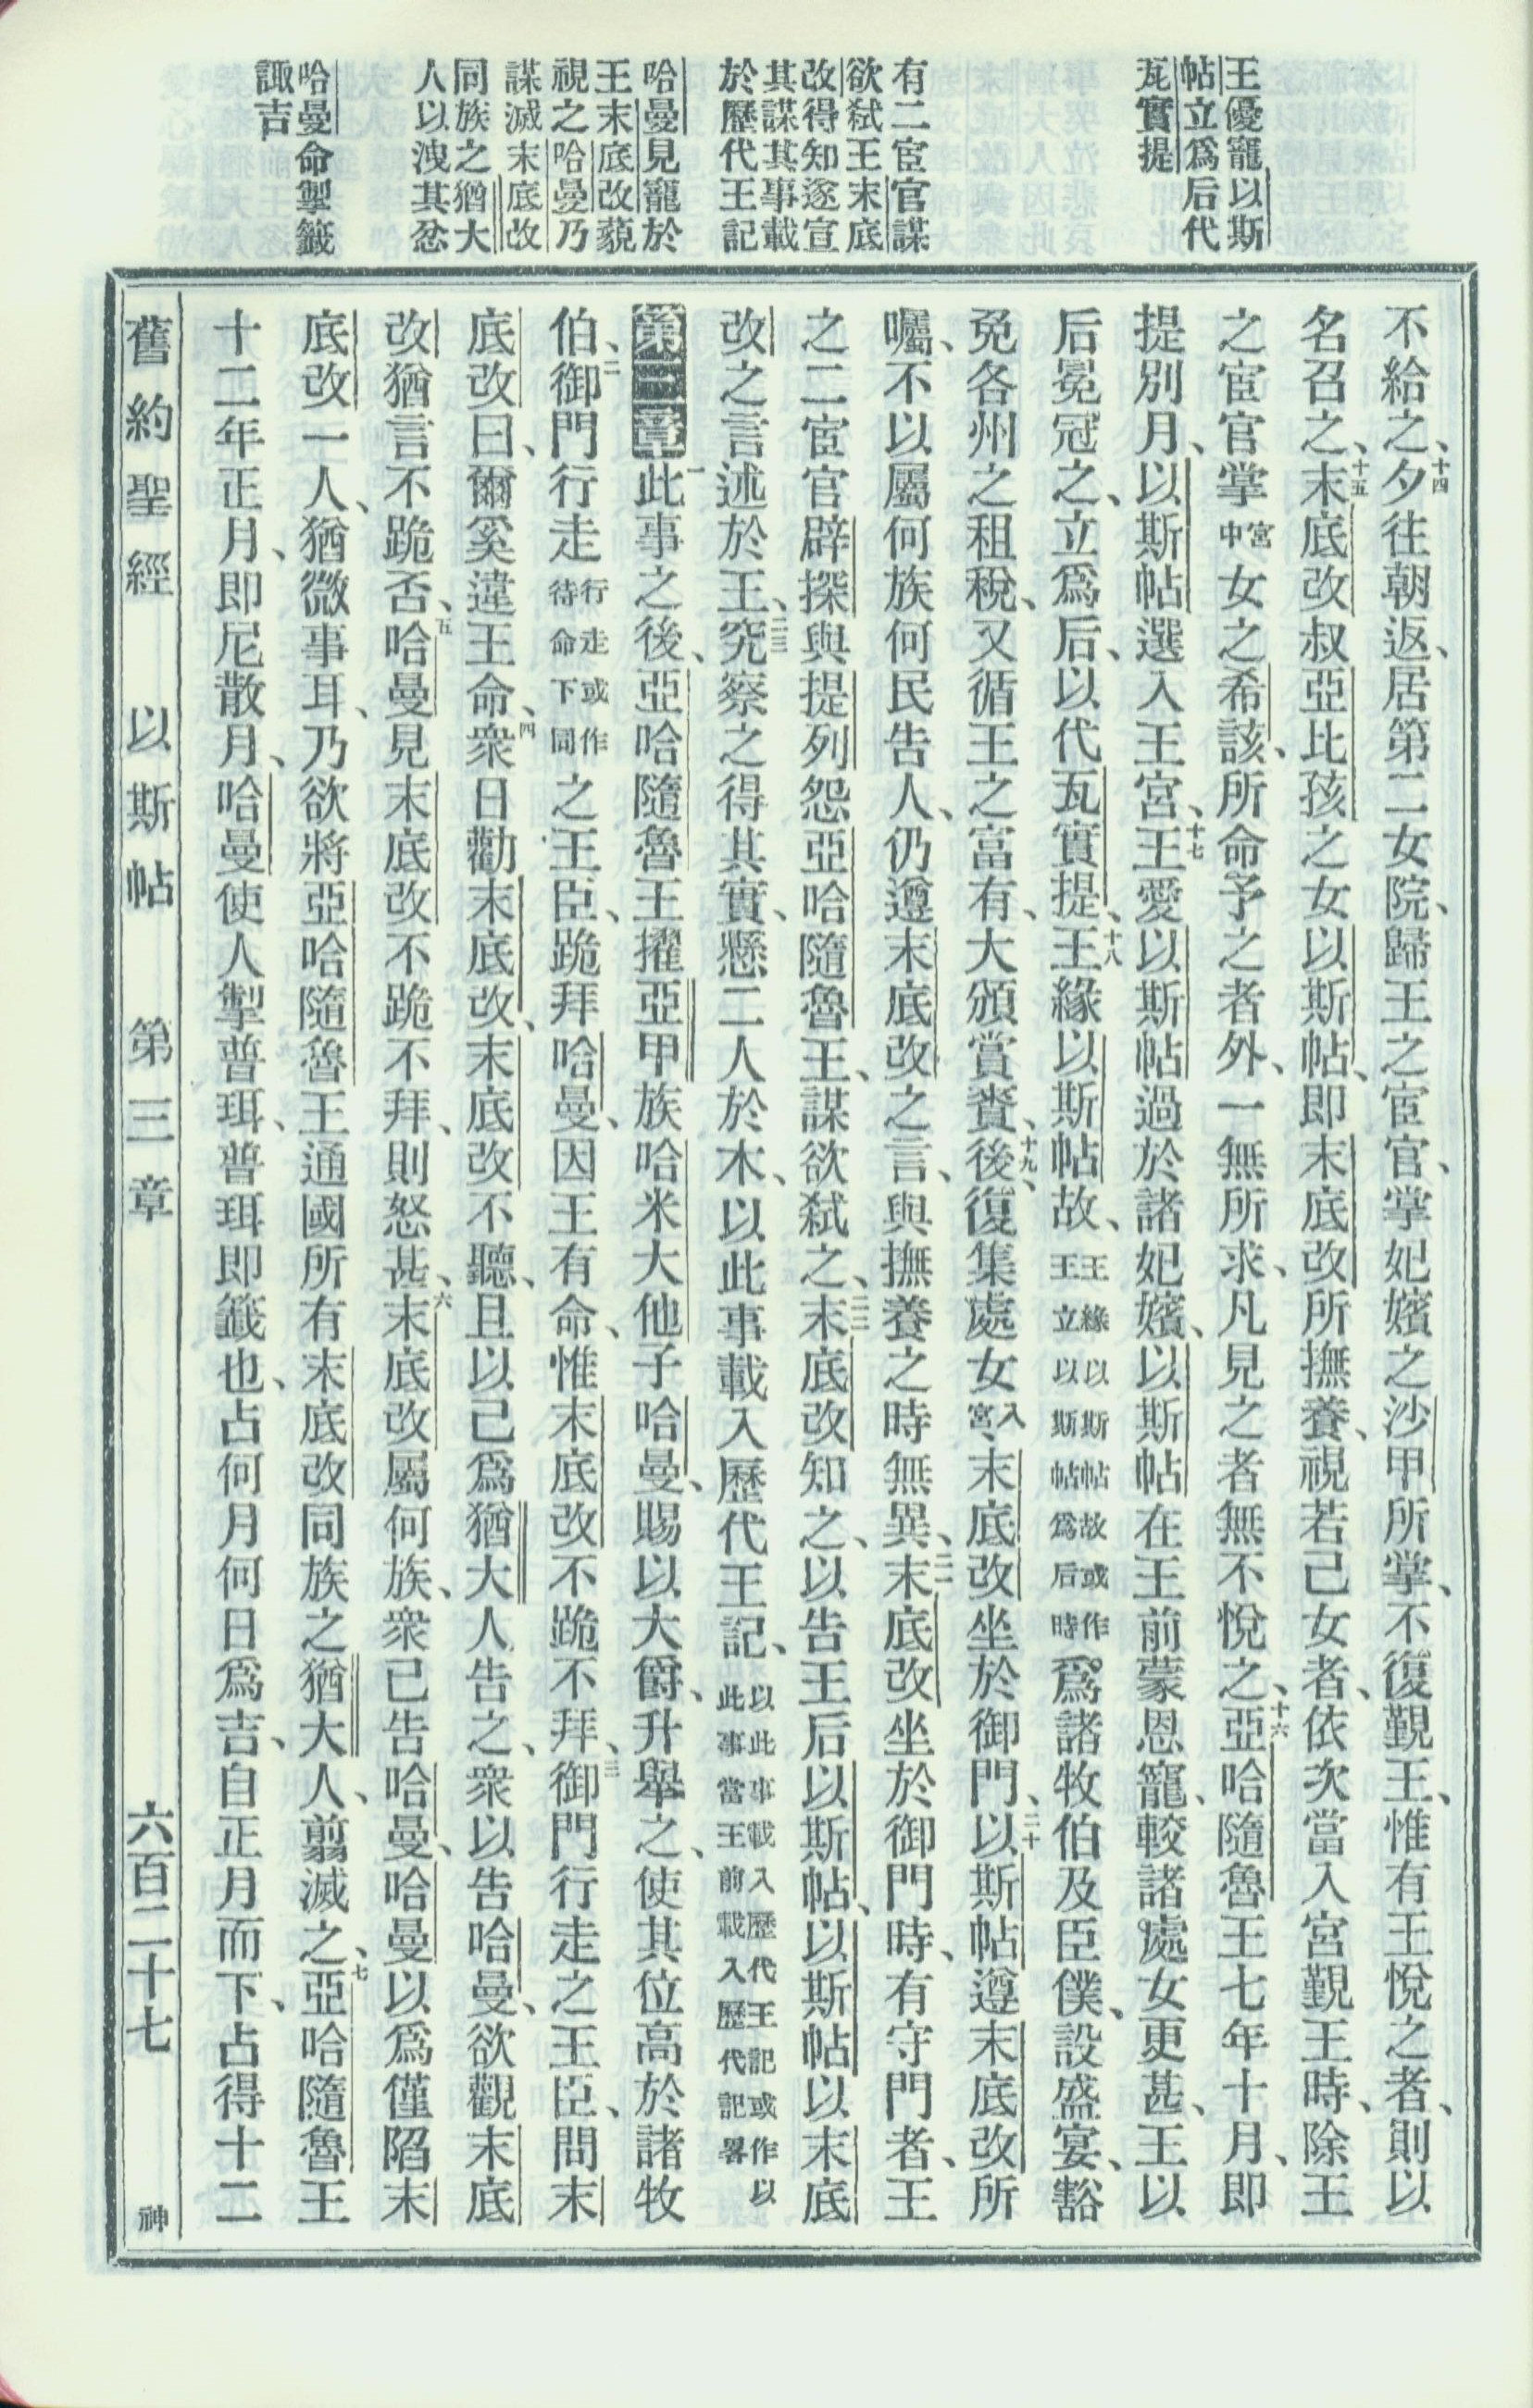 王優寵以斯
帖立爲后代
瓦實提
有二宦官謀
欲弒王末底
改得知遂宣
其謀其事載
於歷代王記
哈曼見寵於
王末底改藐
視之哈曼乃
謀滅末底改
同族之猶大
人以洩其忿
哈曼命掣籤
諏吉
不給之、十四夕往朝返、居第二女院、歸王之宦官、掌妃嬪之沙甲所掌、不復覲王、惟有王悅之者、則以
名召之、十五末底改叔亞比孩之女以斯帖、卽末底改所撫養、視若己女者、依次當入宮覲王時、除王
之宦官掌宮中女之希該、所命予之者外、一無所求、凡見之者無不悅之、十六亞哈隨魯王七年十月、卽
提別月、以斯帖選入王宮、十七王愛以斯帖過於諸妃嬪、以斯帖在王前蒙恩寵、較諸處女更甚、王以
后冕冠之、立爲后、以代瓦實提、十八王緣以斯帖故、王緣以斯帖故或作王立以斯帖爲后時爲諸牧伯及臣僕、設盛宴、豁
免各州之租稅、又循王之富有、大頒賞賚、十九後、復集處女入宮、末底改坐於御門、二十以斯帖遵末底改所
囑、不以屬何族何民告人、仍遵末底改之言、與撫養之時無異、二一末底改坐於御門時、有守門者、王
之二宦官辟探與提列怨亞哈隨魯王、謀欲弒之、二二末底改知之、以告王后以斯帖、以斯帖以末底
改之言述於王、二三究察之得其實、懸二人於木、以此事載入歷代王記、以此事載入歷代王記或作以此事當王前載入歷代記畧
第三章一此事之後、亞哈隨魯王擢亞甲族哈米大他子哈曼、賜以大爵、升舉之、使其位高於諸牧
伯、二御門行走行走或作待命下同之王臣、跪拜哈曼、因王有命、惟末底改不跪不拜、三御門行走之王臣、問末
底改曰、爾奚違王命、四衆日勸末底改、末底改不聽、且以己爲猶大人告之、衆以告哈曼、欲觀末底
改猶言不跪否、五哈曼見末底改不跪不拜、則怒甚、六末底改屬何族、衆已告哈曼、哈曼以爲僅陷末
底改一人、猶微事耳、乃欲將亞哈隨魯王通國所有末底改同族之猶大人、翦滅之、七亞哈隨魯王
十二年正月、卽尼散月、哈曼使人掣普珥、普珥卽籤也、占何月何日爲吉、自正月而下、占得十二
舊約聖經　以斯帖　第三章　六百二十七　神